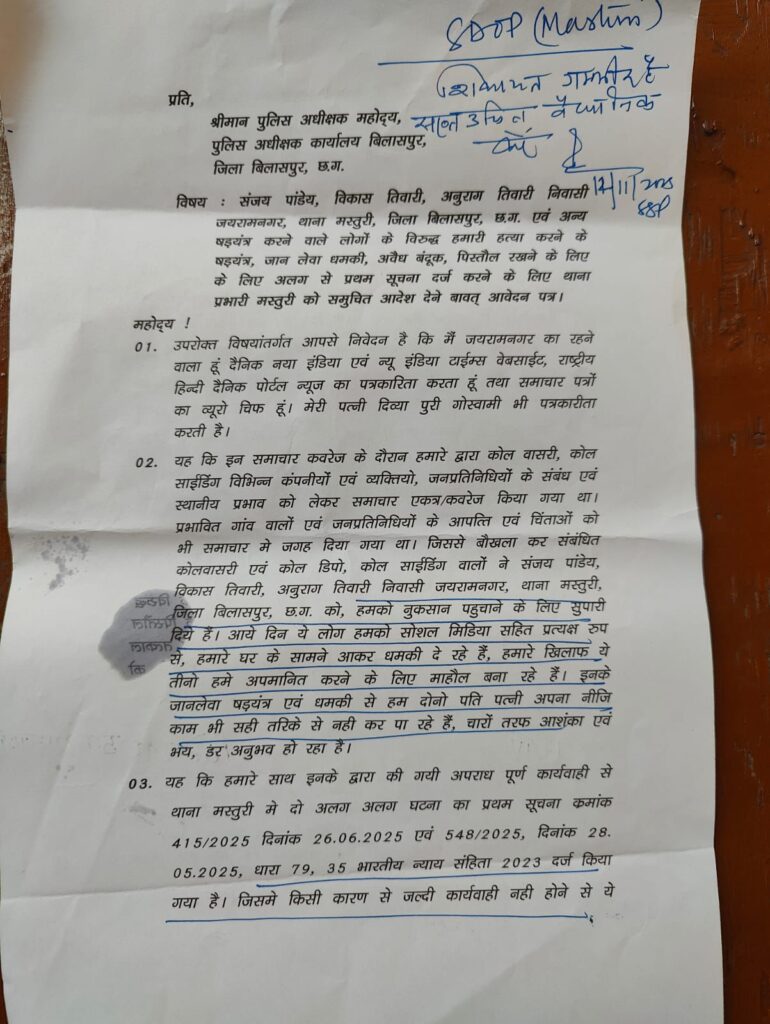 SDOP (Masturi)
शिकायत गम्भीर है
उचित वैधानिक
करें
12/11/2025
SSP
प्रति,
श्रीमान पुलिस अधीक्षक महोद्य,
पुलिस अधीक्षक कार्यालय बिलासपुर,
जिला बिलासपुर, छ.ग.
विषय : संजय पांडेय, विकास तिवारी, अनुराग तिवारी निवासी
जयरामनगर, थाना मस्तुरी, जिला बिलासपुर, छ.ग. एवं अन्य
षड़यंत्र करने वाले लोगों के विरुद्ध हमारी हत्या करने के
षड़यंत्र, जान लेवा धमकी, अवैध बंदूक, पिस्तौल रखने के लिए
के लिए अलग से प्रथम सूचना दर्ज करने के लिए थाना
प्रभारी मस्तुरी को समुचित आदेश देने बावत् आवेदन पत्र।
महोद्य !
01. उपरोक्त विषयांतर्गत आपसे निवेदन है कि मैं जयरामनगर का रहने
वाला हूं दैनिक नया इंडिया एवं न्यू इंडिया टाईम्स वेबसाईट, राष्ट्रीय
हिन्दी दैनिक पोर्टल न्यूज का पत्रकारिता करता हूं तथा समाचार पत्रों
का व्यूरो चिफ हूं। मेरी पत्नी दिव्या पुरी गोस्वामी भी पत्रकारीता
करती है।
02. यह कि इन समाचार कवरेज के दौरान हमारे द्वारा कोल वासरी, कोल
साईडिंग विभिन्न कंपनीयों एवं व्यक्तियो, जनप्रतिनिधियों के संबंध एवं
स्थानीय प्रभाव को लेकर समाचार एकत्र/कवरेज किया गया था।
प्रभावित गांव वालों एवं जनप्रतिनिधियों के आपत्ति एवं चिंताओं को
भी समाचार मे जगह दिया गया था। जिससे बौखला कर संबंधित
कोलवासरी एवं कोल डिपो, कोल साईडिंग वालों ने संजय पांडेय,
विकास तिवारी, अनुराग तिवारी निवासी जयरामनगर, थाना मस्तुरी,
जिला बिलासपुर, छ.ग. को, हमको नुकसान पहुचाने के लिए सुपारी
दिये है। आये दिन ये लोग हमको सोशल मिडिया सहित प्रत्यक्ष रुप
से, हमारे घर के सामने आकर धमकी दे रहे हैं, हमारे खिलाफ ये
तीनो हमे अपमानित करने के लिए माहौल बना रहे है। इनके
जानलेवा षड़यंत्र एवं धमकी से हम दोनो पति पत्नी अपना नीजि
काम भी सही तरिके से नही कर पा रहे हैं, चारों तरफ आशंका एवं
भय, डर अनुभव हो रहा है।
03. यह कि हमारे साथ इनके द्वारा की गयी अपराध पूर्ण कार्यवाही से
थाना मस्तुरी मे दो अलग अलग घटना का प्रथम सूचना कमांक
415/2025 दिनांक 26.06.2025 एवं 548/2025, दिनांक 28.
05.2025, धारा 79, 35 भारतीय न्याय संहिता 2023 दर्ज किया
गया है। जिसमे किसी कारण से जल्दी कार्यवाही नही होने से ये